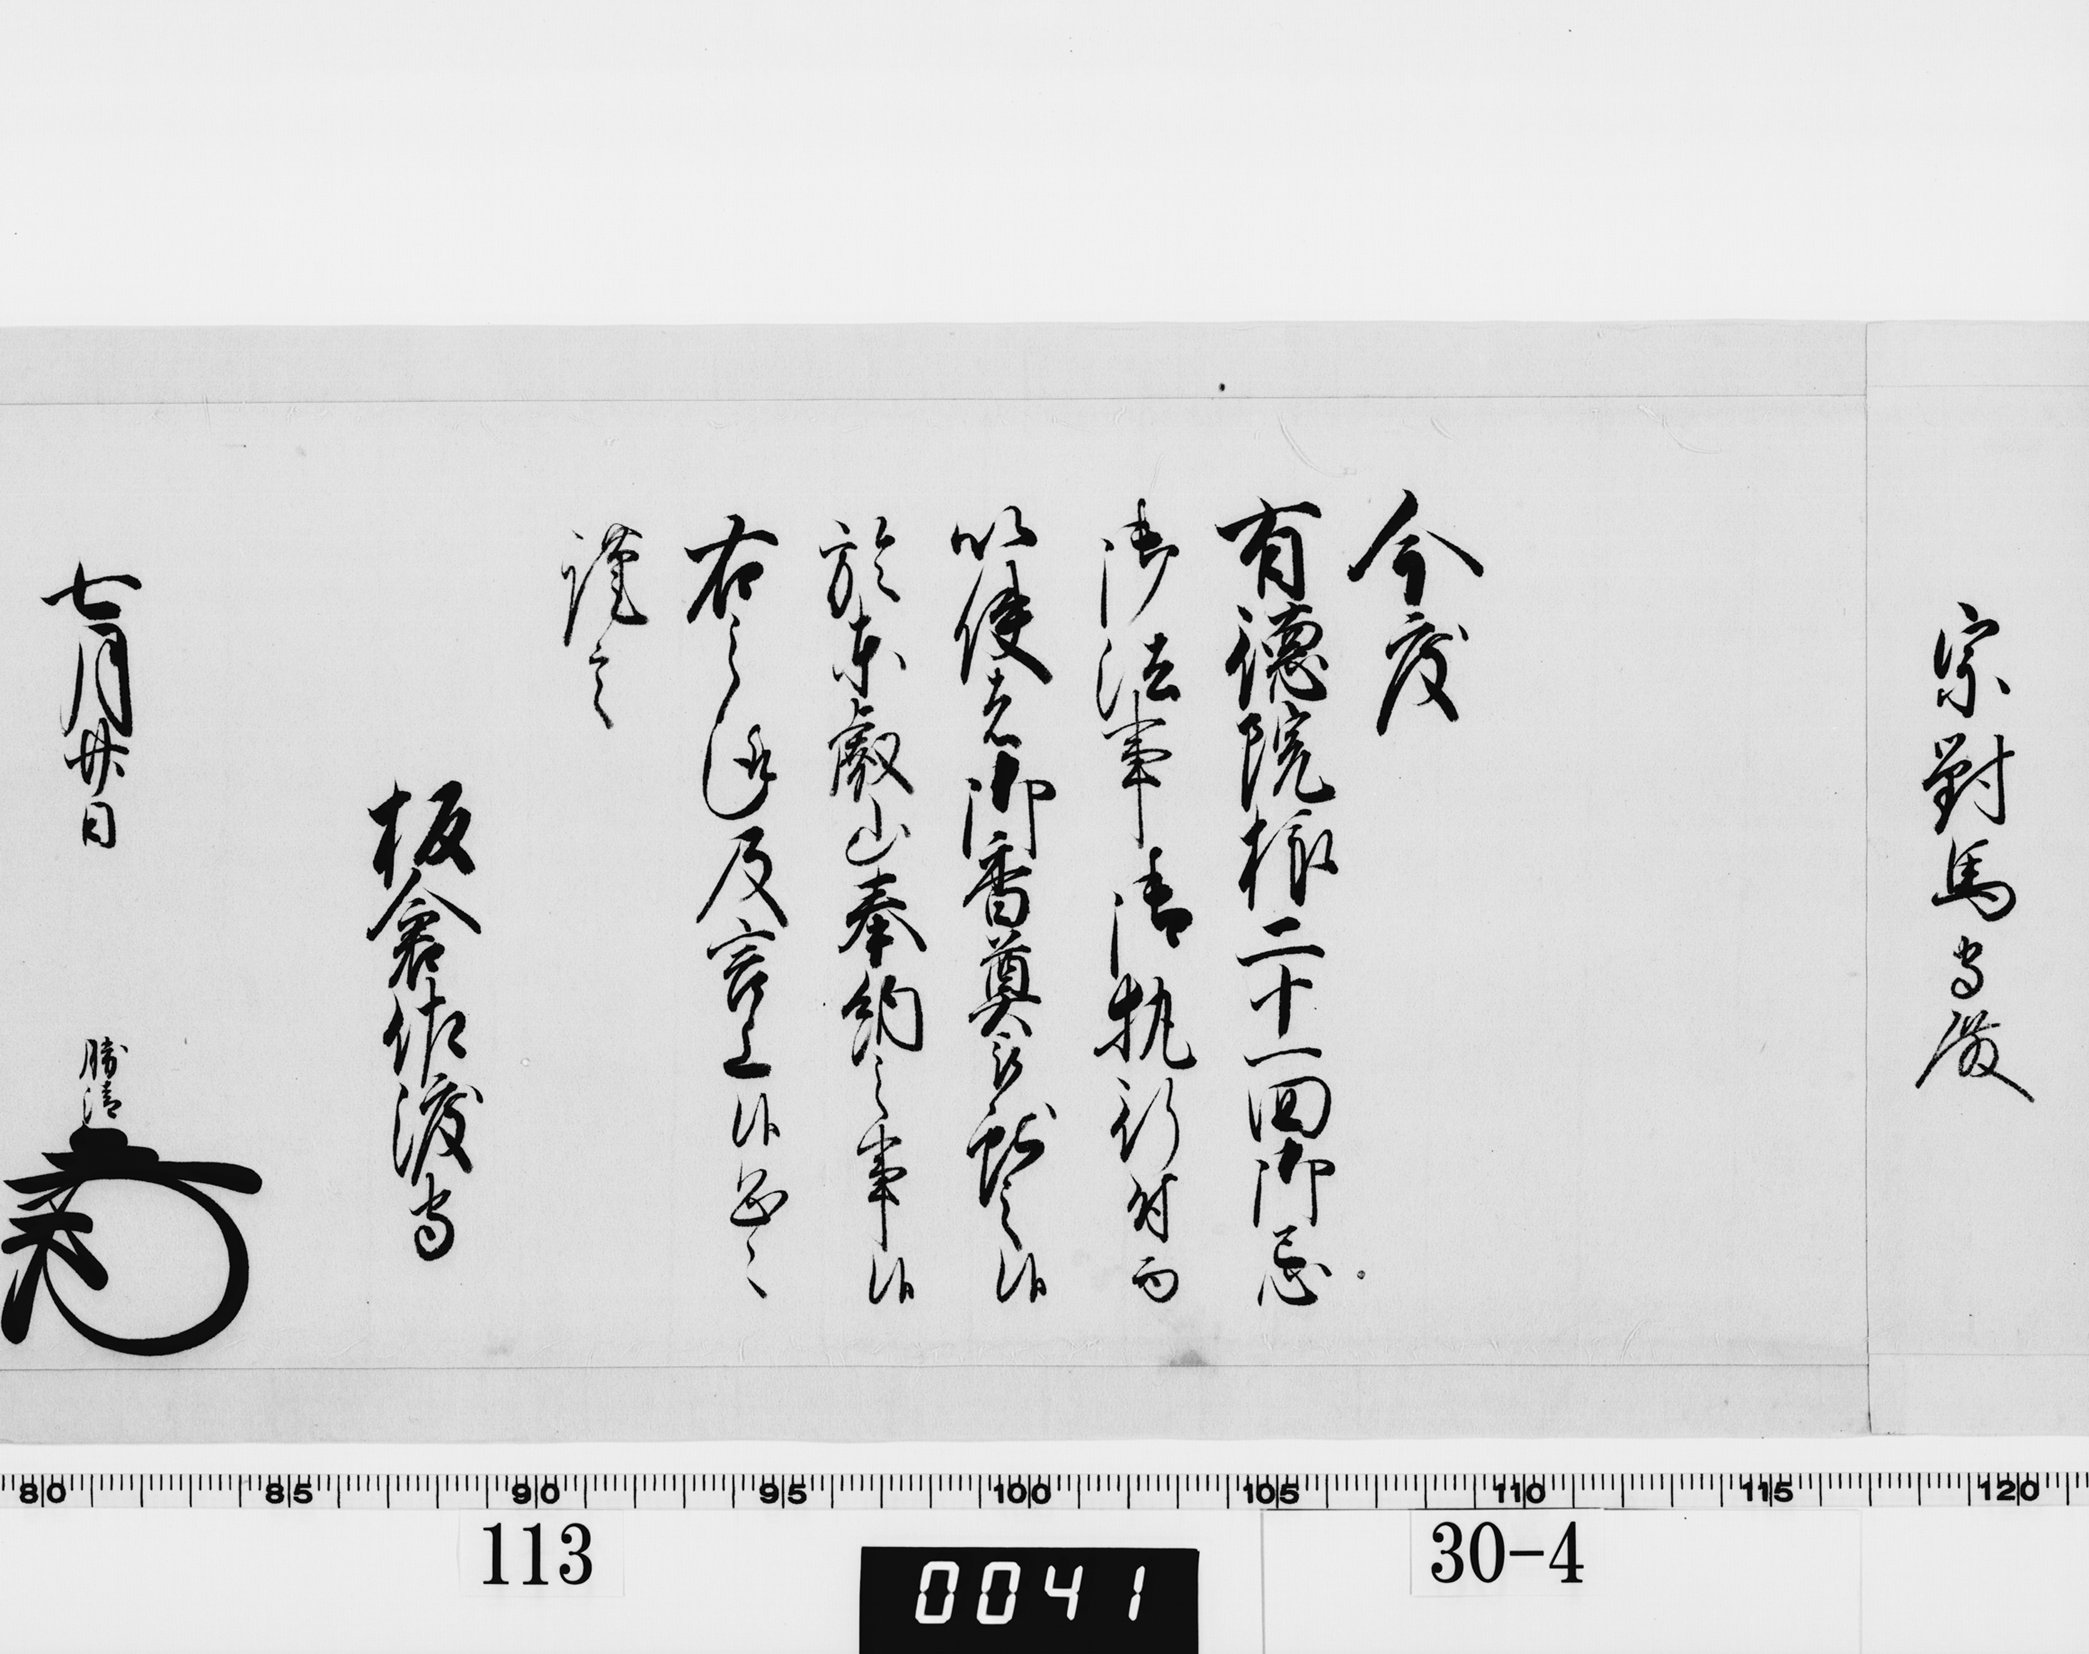 宗對馬守殿
今度
有德院様二十一回御忌
御法事御執行付而
以使者御香奠被献之候
於東叡山奉納之事候
右之趣及言上候恐々
謹言
板倉佐渡守
七月廿日
勝清
80 85 90 95 100 105 110 115 120
113
0041
30-4